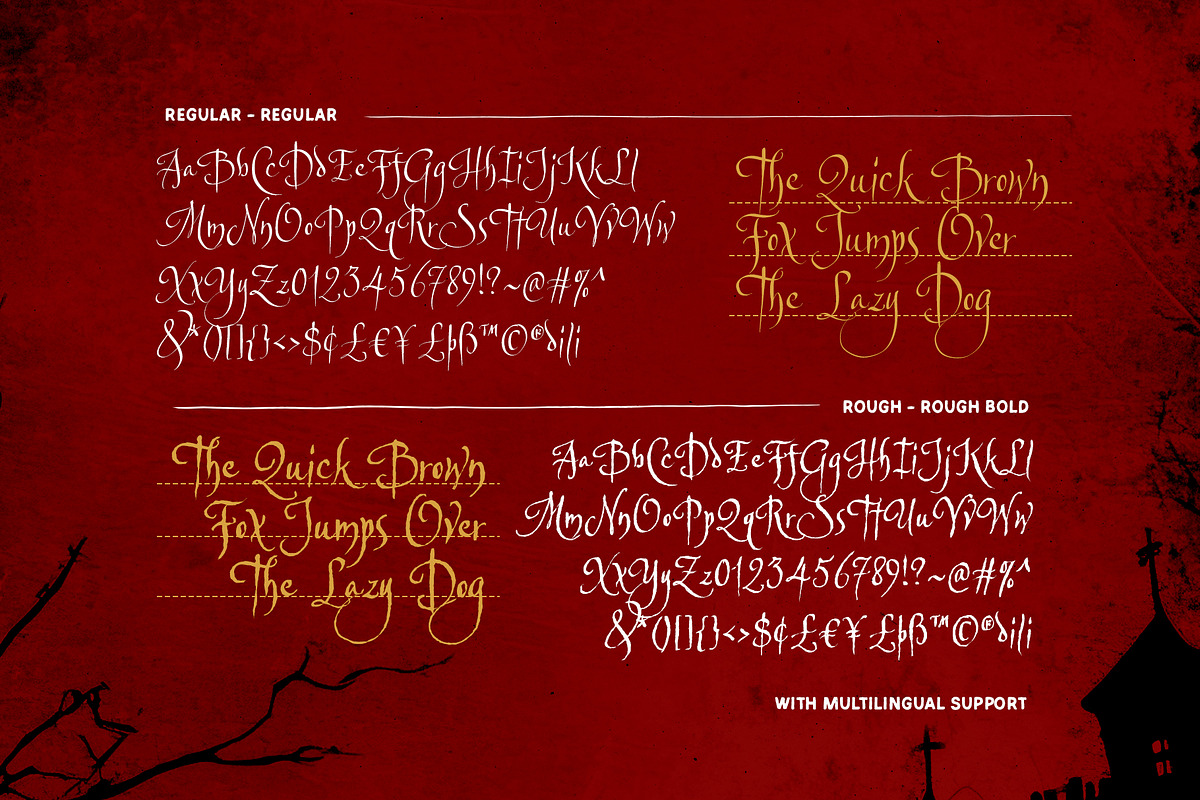 REGULAR - REGULAR
AaBbCcDdEeFfGgHhIiJjKkLl
MmNnOoPpQqRrSsTtUuVvWw
XxYyZz0123456789!?~@#%^
&*()[]{}<>$¢£€¥ £þß™©®
The Quick Brown
Fox Jumps Over
The Lazy Dog
ROUGH - ROUGH BOLD
The Quick Brown
Fox Jumps Over
The Lazy Dog
AaBbCcDdEeFfGgHhIiJjKkLl
MmNnOoPpQqRrSsTtUuVvWw
XxYyZz0123456789!?~@#%^
&*()[]{}<>$¢£€¥ £þß™©®
WITH MULTILINGUAL SUPPORT